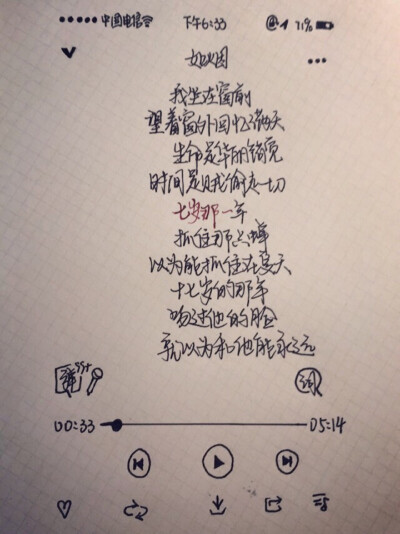 中国电信 下午6:33 @ 71%
如烟
我坐在窗前
望着窗外回忆满天
生命是华丽错觉
时间是贼偷走一切
七岁那一年
抓住那只蝉
以为能抓住夏天
十七岁的那年
吻过他的脸
就以为和他能永远
弹 词
00:33 05:14